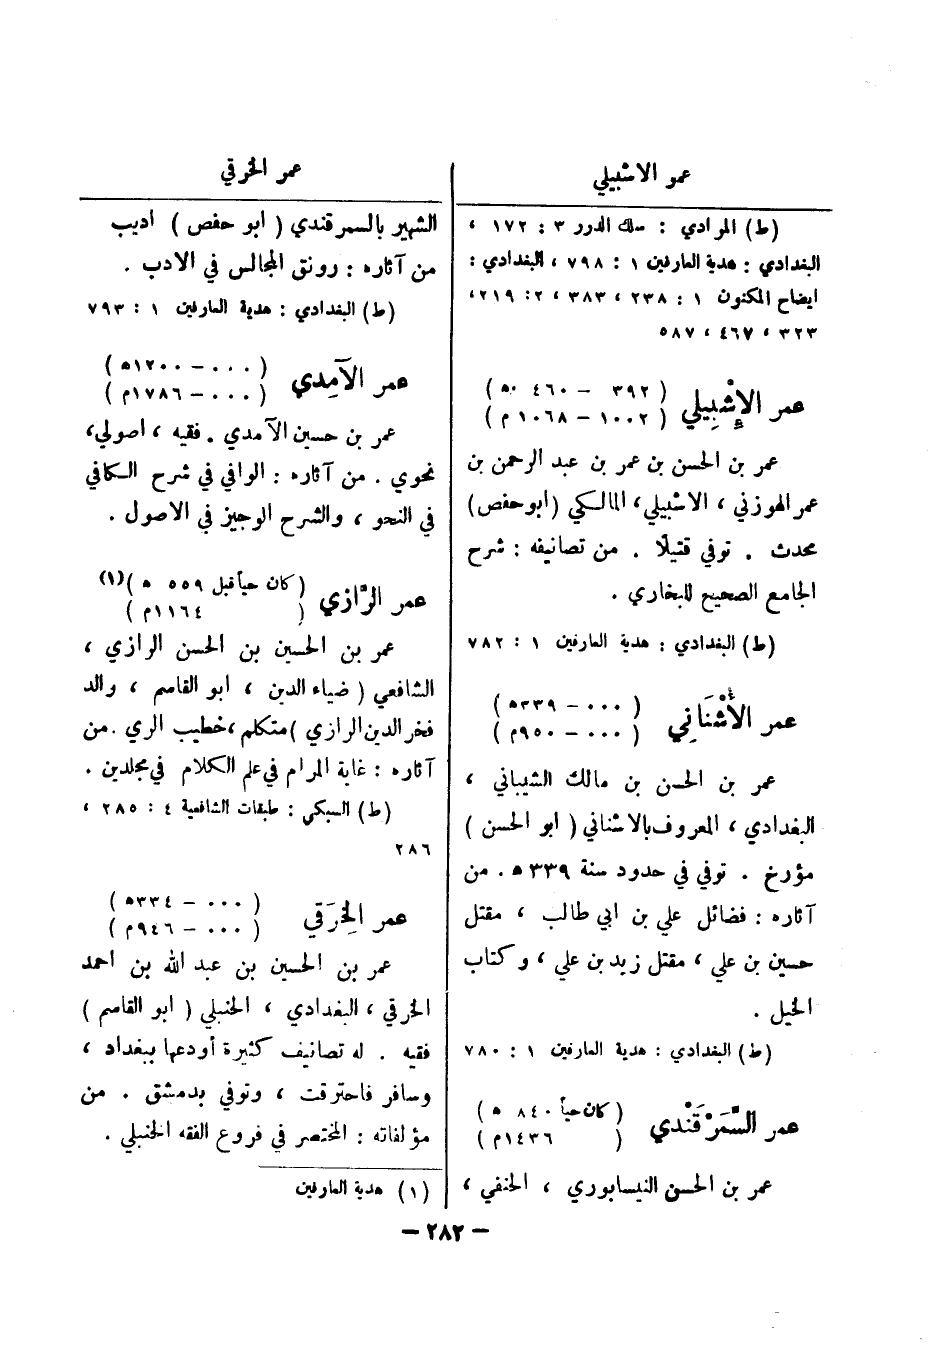 عمر الاشبيلي
(ط) المرادي : سلك الدرر ٣ : ١٧٢ ،
البغدادي : هدية العارفين ١ : ٧٩٨ ، البغدادي :
ايضاح المكنون ١ : ٢٣٨ ، ٣٨٣ ، ٢ : ٢١٩ ،
٣٢٣ ، ٤٦٧ ، ٥٨٧
عمر الإشْبِيلي ( ٣٩٢ - ٤٦٠ ه )
( ١٠٠٢ - ١٠٦٨ م )
عمر بن الحسن بن عمر بن عبد الرحمن بن
عمر الهوزني ، الاشبيلي، المالكي (ابو حفص)
محدث . توفي قتيلًا . من تصانيفه : شرح
الجامع الصحيح للبخاري .
(ط) البغدادي : هدية العارفين ١ : ٧٨٢
عمر الأُشْنَانِي ( ٠٠٠ - ٣٣٩ه )
( ٠٠٠ - ٩٥٠م )
عمر بن الحسن بن مالك الشيباني ،
البغدادي ، المعروف بالاشناني ( ابو الحسن )
مؤرخ . توفي في حدود سنة ٣٣٩ ه . من
آثاره : فضائل علي بن ابي طالب ، مقتل
حسين بن علي ، مقتل زيد بن علي ، وكتاب
الخيل .
(ط) البغدادي : هدية العارفين ١ : ٧٨٠
عمر السَّمَرْقَندي ( كان حياً ٨٤٠ ه )
( ١٤٣٦م )
عمر بن الحسن النيسابوري ، الحنفي ،
عمر الخرقي
الشهير بالسمرقندي ( ابو حفص ) أديب
من آثاره : رونق المجالس في الادب .
(ط) البغدادي : هدية العارفين ١ : ٧٩٣
عمر الآمِدي ( ٠٠٠ - ١٢٠٠ه )
( ٠٠٠ - ١٧٨٦م )
عمر بن حسين الآمدي . فقيه ، اصولي،
نحوي . من آثاره : الوافي في شرح الكافي
في النحو ، والشرح الوجيز في الاصول .
عمر الرَّازي ( كان حياً قبل ٥٥٩ ه )(١)
( ١١٦٤م )
عمر بن الحسين بن الحسن الرازي ،
الشافعي ( ضياء الدين ، ابو القاسم ، والد
فخر الدين الرازي ) متكلم ، خطيب الري . من
آثاره : غاية المرام في علم الكلام في مجلدين .
(ط) السبكي : طبقات الشافعية ٤ : ٢٨٥ ،
٢٨٦
عمر الخِرَقي ( ٠٠٠ - ٣٣٤ه )
( ٠٠٠ - ٩٤٦م )
عمر بن الحسين بن عبد الله بن احمد
الخرقي ، البغدادي ، الحنبلي ( ابو القاسم )
فقيه . له تصانيف كثيرة أودعها ببغداد ،
وسافر فاحترقت ، وتوفي بدمشق . من
مؤلفاته : المختصر في فروع الفقه الحنبلي .
(١) هدية العارفين
— ٢٨٢ —